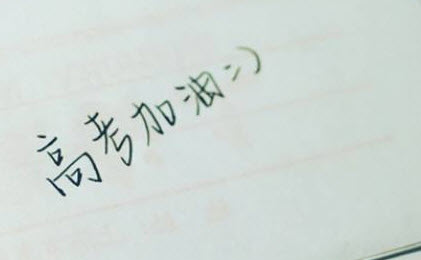 高考加油=)